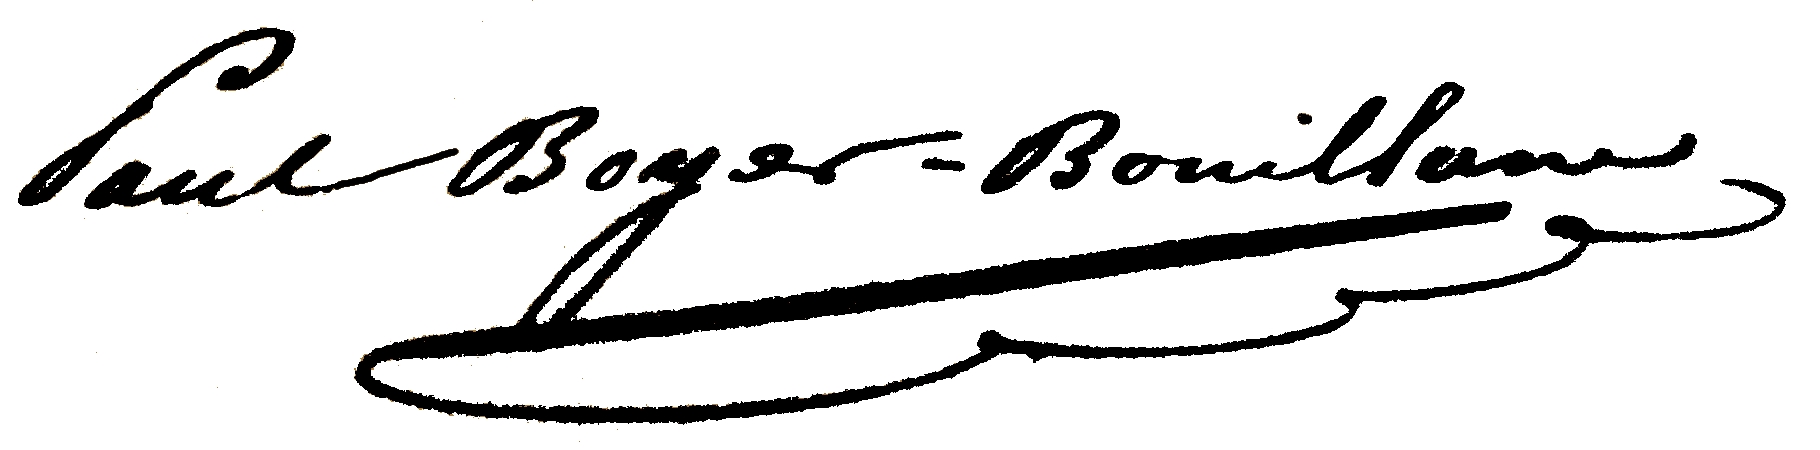 Paul Boyer-Bouillane